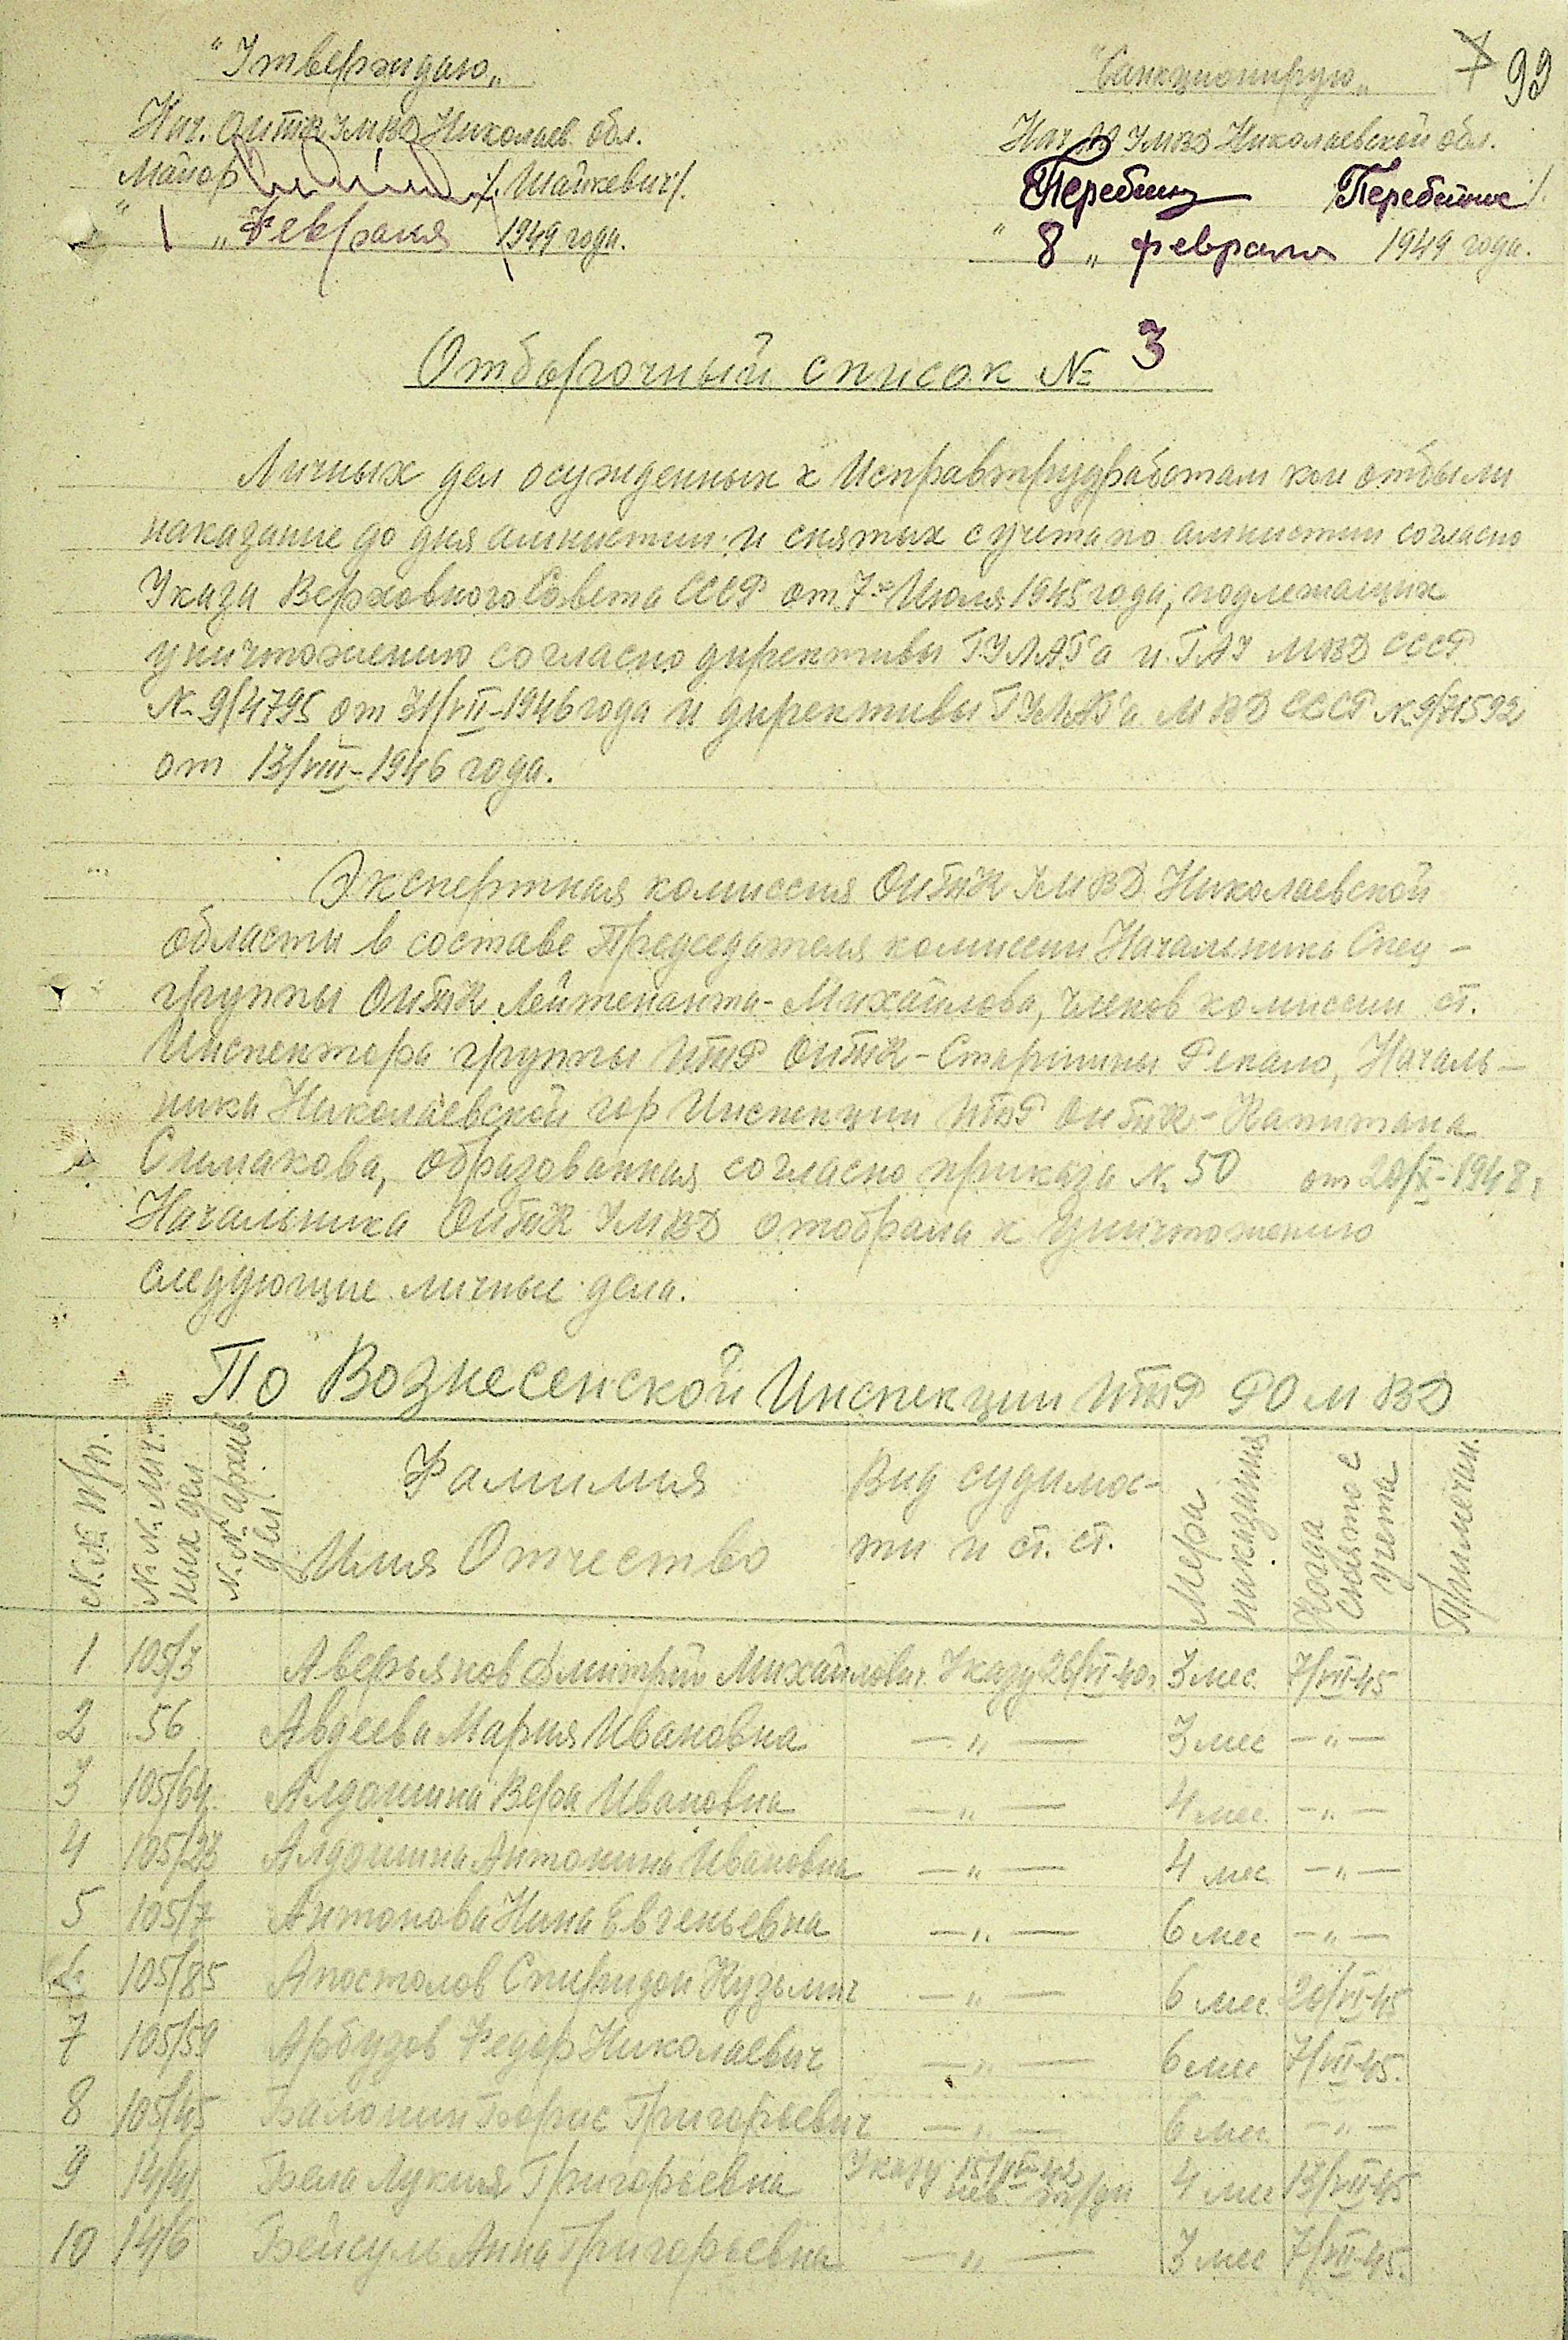 "Утверждаю"
Нач. ОИТК УМВД Николаев. обл.
Майор /Шайкевич/.
" 1 " Февраля 1949 года.
"Санкционирую"
99
Нач. УМВД Николаевской обл.
/
" 8 " февраля 1949 года.
Отборочный список № 3
Личных дел осужденных к Исправтрудработам кои отбыли
наказание до дня амнистии и снятых с учета по амнистии согласно
Указа Верховного Совета СССР от 7-го Июля 1945 года, подлежащих
уничтожению согласно директивы ГУЛАГ'а и ГАУ МВД СССР
№ 9/4795 от 31/VII-1946 года и директивы ГУЛАГ'а МВД СССР №
от 13/VIII-1946 года.
Экспертная комиссия ОИТК УМВД Николаевской
области в составе Председателя комиссии Начальника Спец-
группы ОИТК Лейтенанта - Михайлова, членов комиссии ст.
Инспектора группы ИТР ОИТК - Старшины Рекало, Началь-
ника Николаевской гор Инспекции ИТР ОИТК - Капитана
Симакова, образованная согласно приказа № 50 от 20/X-1948г
Начальника ОИТК УМВД отобрала к уничтожению
следующие личные дела.
По Вознесенской Инспекции ИТР РО МВД
№№ п/п. №№ лич-ных дел №№ архив дел Фамилия Имя Отчество Вид судимос-ти и ст. ст. Мера наказания Когда снято с учета Примечан.
1 105/3 Аверьянов Дмитрий Михайлович Указу 26/VI-40г 3 мес. 7/VII-45
2 56 Авдеева Мария Ивановна — " — 3 мес — " —
3 105/64 Алдошина Вера Ивановна — " — 4 мес. — " —
4 105/23 Алдошина Антонина Ивановна — " — 4 мес. — " —
5 105/7 Антонова Нина Евгеньевна — " — 6 мес — " —
6 105/85 Апостолов Спиридон Кузьмич — " — 6 мес. 20/VI-45
7 105/59 Арбузов Федор Николаевич — " — 6 мес 7/VII-45.
8 105/45 Балонин Борис Григорьевич — " — 6 мес. — " —
9 14/41 Бела Лукия Григорьевна Указу 15/IV-42 нев тр/дн 4 мес 13/VII-45
10 14/6 Бейсуль Анна Григорьевна — " — 3 мес 7/VII-45.